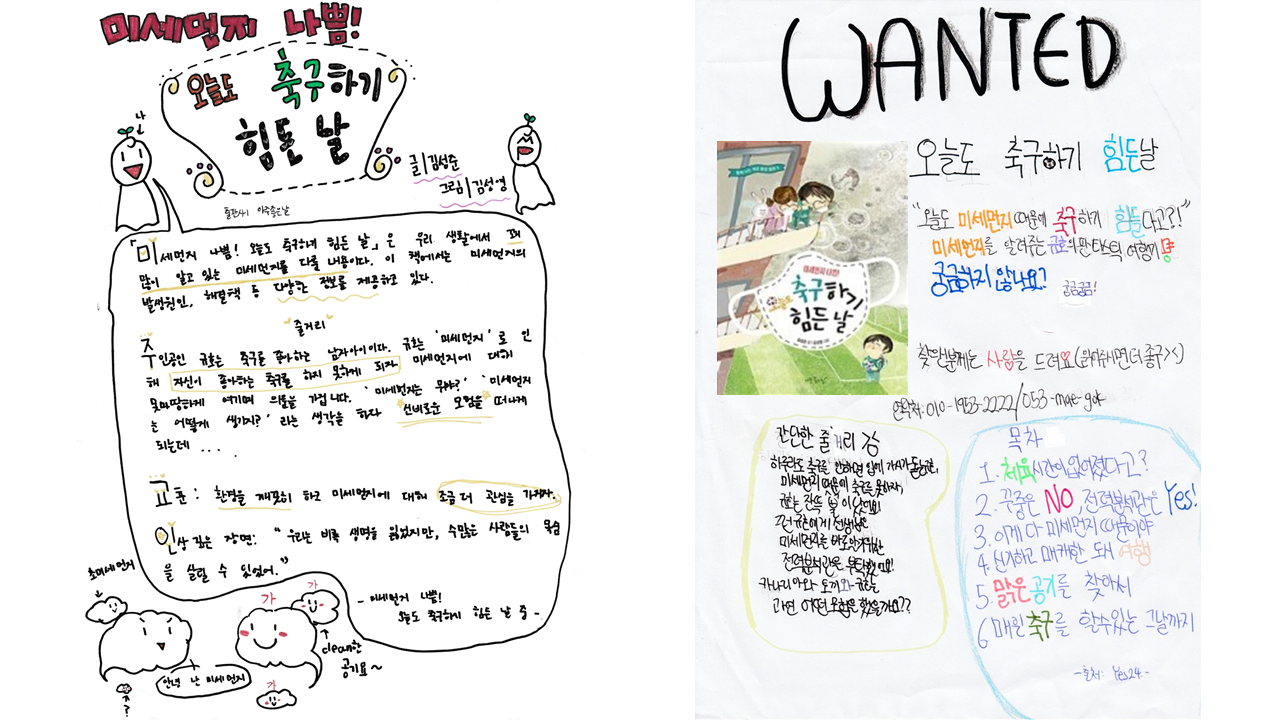 미세먼지 나쁨!
오늘도 축구하기
힘든 날
나
글|김성준
그림|김성영
출판사| 아주좋은날
「미세먼지 나쁨! 오늘도 축구하기 힘든 날」은 우리 생활에서 꽤
많이 알고 있는 미세먼지를 다룬 내용이다. 이 책에서는 미세먼지의
발생원인, 해결책 등 다양한 정보를 제공하고 있다.
줄거리
주인공인 규호는 축구를 좋아하는 남자아이이다. 규호는 '미세먼지'로 인
해 자신이 좋아하는 축구를 하지 못하게 되자 미세먼지에 대해
못마땅하게 여기며 의문을 가집니다. '미세먼지는 뭐야?' '미세먼지
는 어떻게 생기지?' 라는 생각을 하다 신비로운 모험을 떠나게
되는데 ....
교훈: 환경을 깨끗히 하고 미세먼지에 대해 조금 더 관심을 가지자.
인상 깊은 장면: "우리는 비록 생명을 잃었지만, 수많은 사람들의 목숨
을 살릴 수 있었어."
- 미세먼지 나쁨!
오늘도 축구하기 힘든 날 중 -
초미세먼지
안녕 난 미세먼지
?
가
가
가
clean한
공기요~
WANTED
오늘도 축구하기 힘든날
"오늘도 미세먼지 때문에 축구하기 힘들다고?!"
미세먼지를 알려주는 규호의 판타스틱 여행기
궁금하지 않나요?
궁금궁금!
미세먼지 나쁨!
오늘도
축구하기
힘든 날
찾아온분께는 사람을 드려요♡(읽어주시면 더 좋구><)
연락처: 010-1953-2222/053-mae-gok
간단한 줄거리 감
하루라도 축구를 안하면 입에 가시가 돋는데,
미세먼지 때문에 축구를 못하자,
규호는 잔뜩 뿔이 났어요!
그런 규호에게 선생님은
미세먼지를 바로알기위한
전력분석관을 부탁했어요!
카나리아와 토끼와 규호는
과연 어떤 모험을 했을까요??
목차
1. 체육시간이 없어졌다고?
2. 꾸중은 NO, 전력분석관은 Yes!
3. 이게 다 미세먼지 때문이야
4. 신기하고 매캐한 도시 여행
5. 맑은공기를 찾아서
6. 매일 축구를 할수있는 그날까지
-출처: Yes24.-